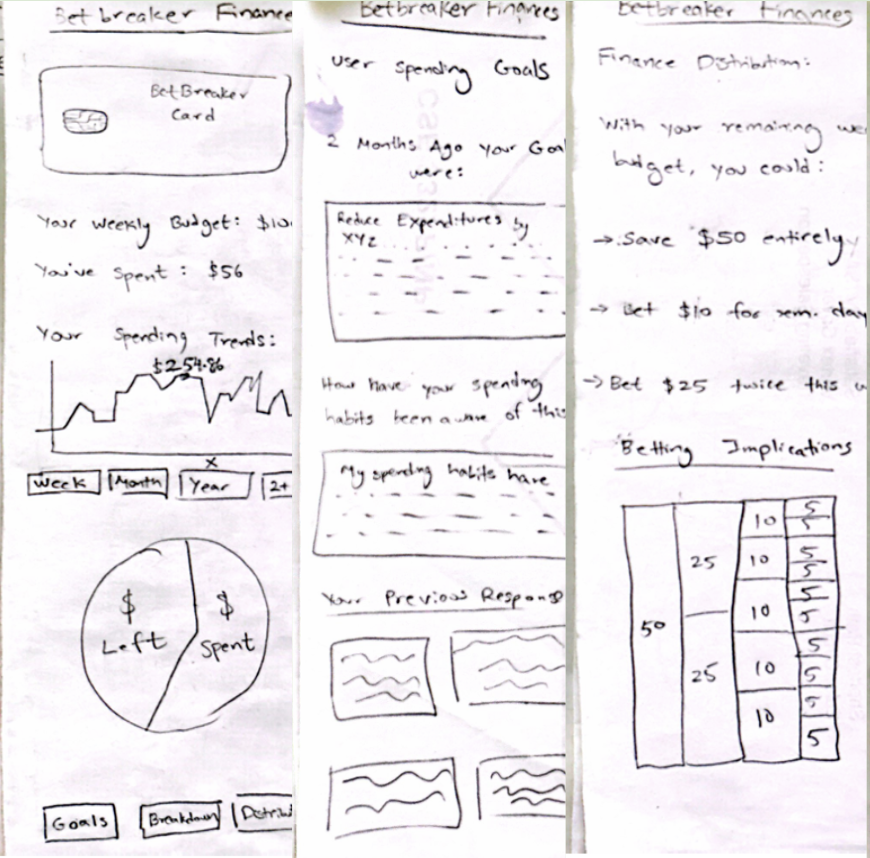 Betbreaker Finance
BetBreaker
Card
Your weekly Budget: $10
You've spent : $56
Your Spending Trends:
$254.86
x
Week
Month
Year
2+
$
Left
$
Spent
Goals
Breakdown
Distribu
Betbreaker Finances
User Spending Goals
2 Months Ago your Goal
were:
Reduce Expenditures by
XYZ
How have your spending
habits been aware of this
My spending habits have
Your Previous Respons
Betbreaker Finances
Finance Distribution:
With your remaining we
budget, you could:
→ Save $50 entirely
→ Bet $10 for rem. day
→ Bet $25 twice this
Betting Implications
50
25
25
10
10
10
10
10
5
5
5
5
5
5
5
5
5
5